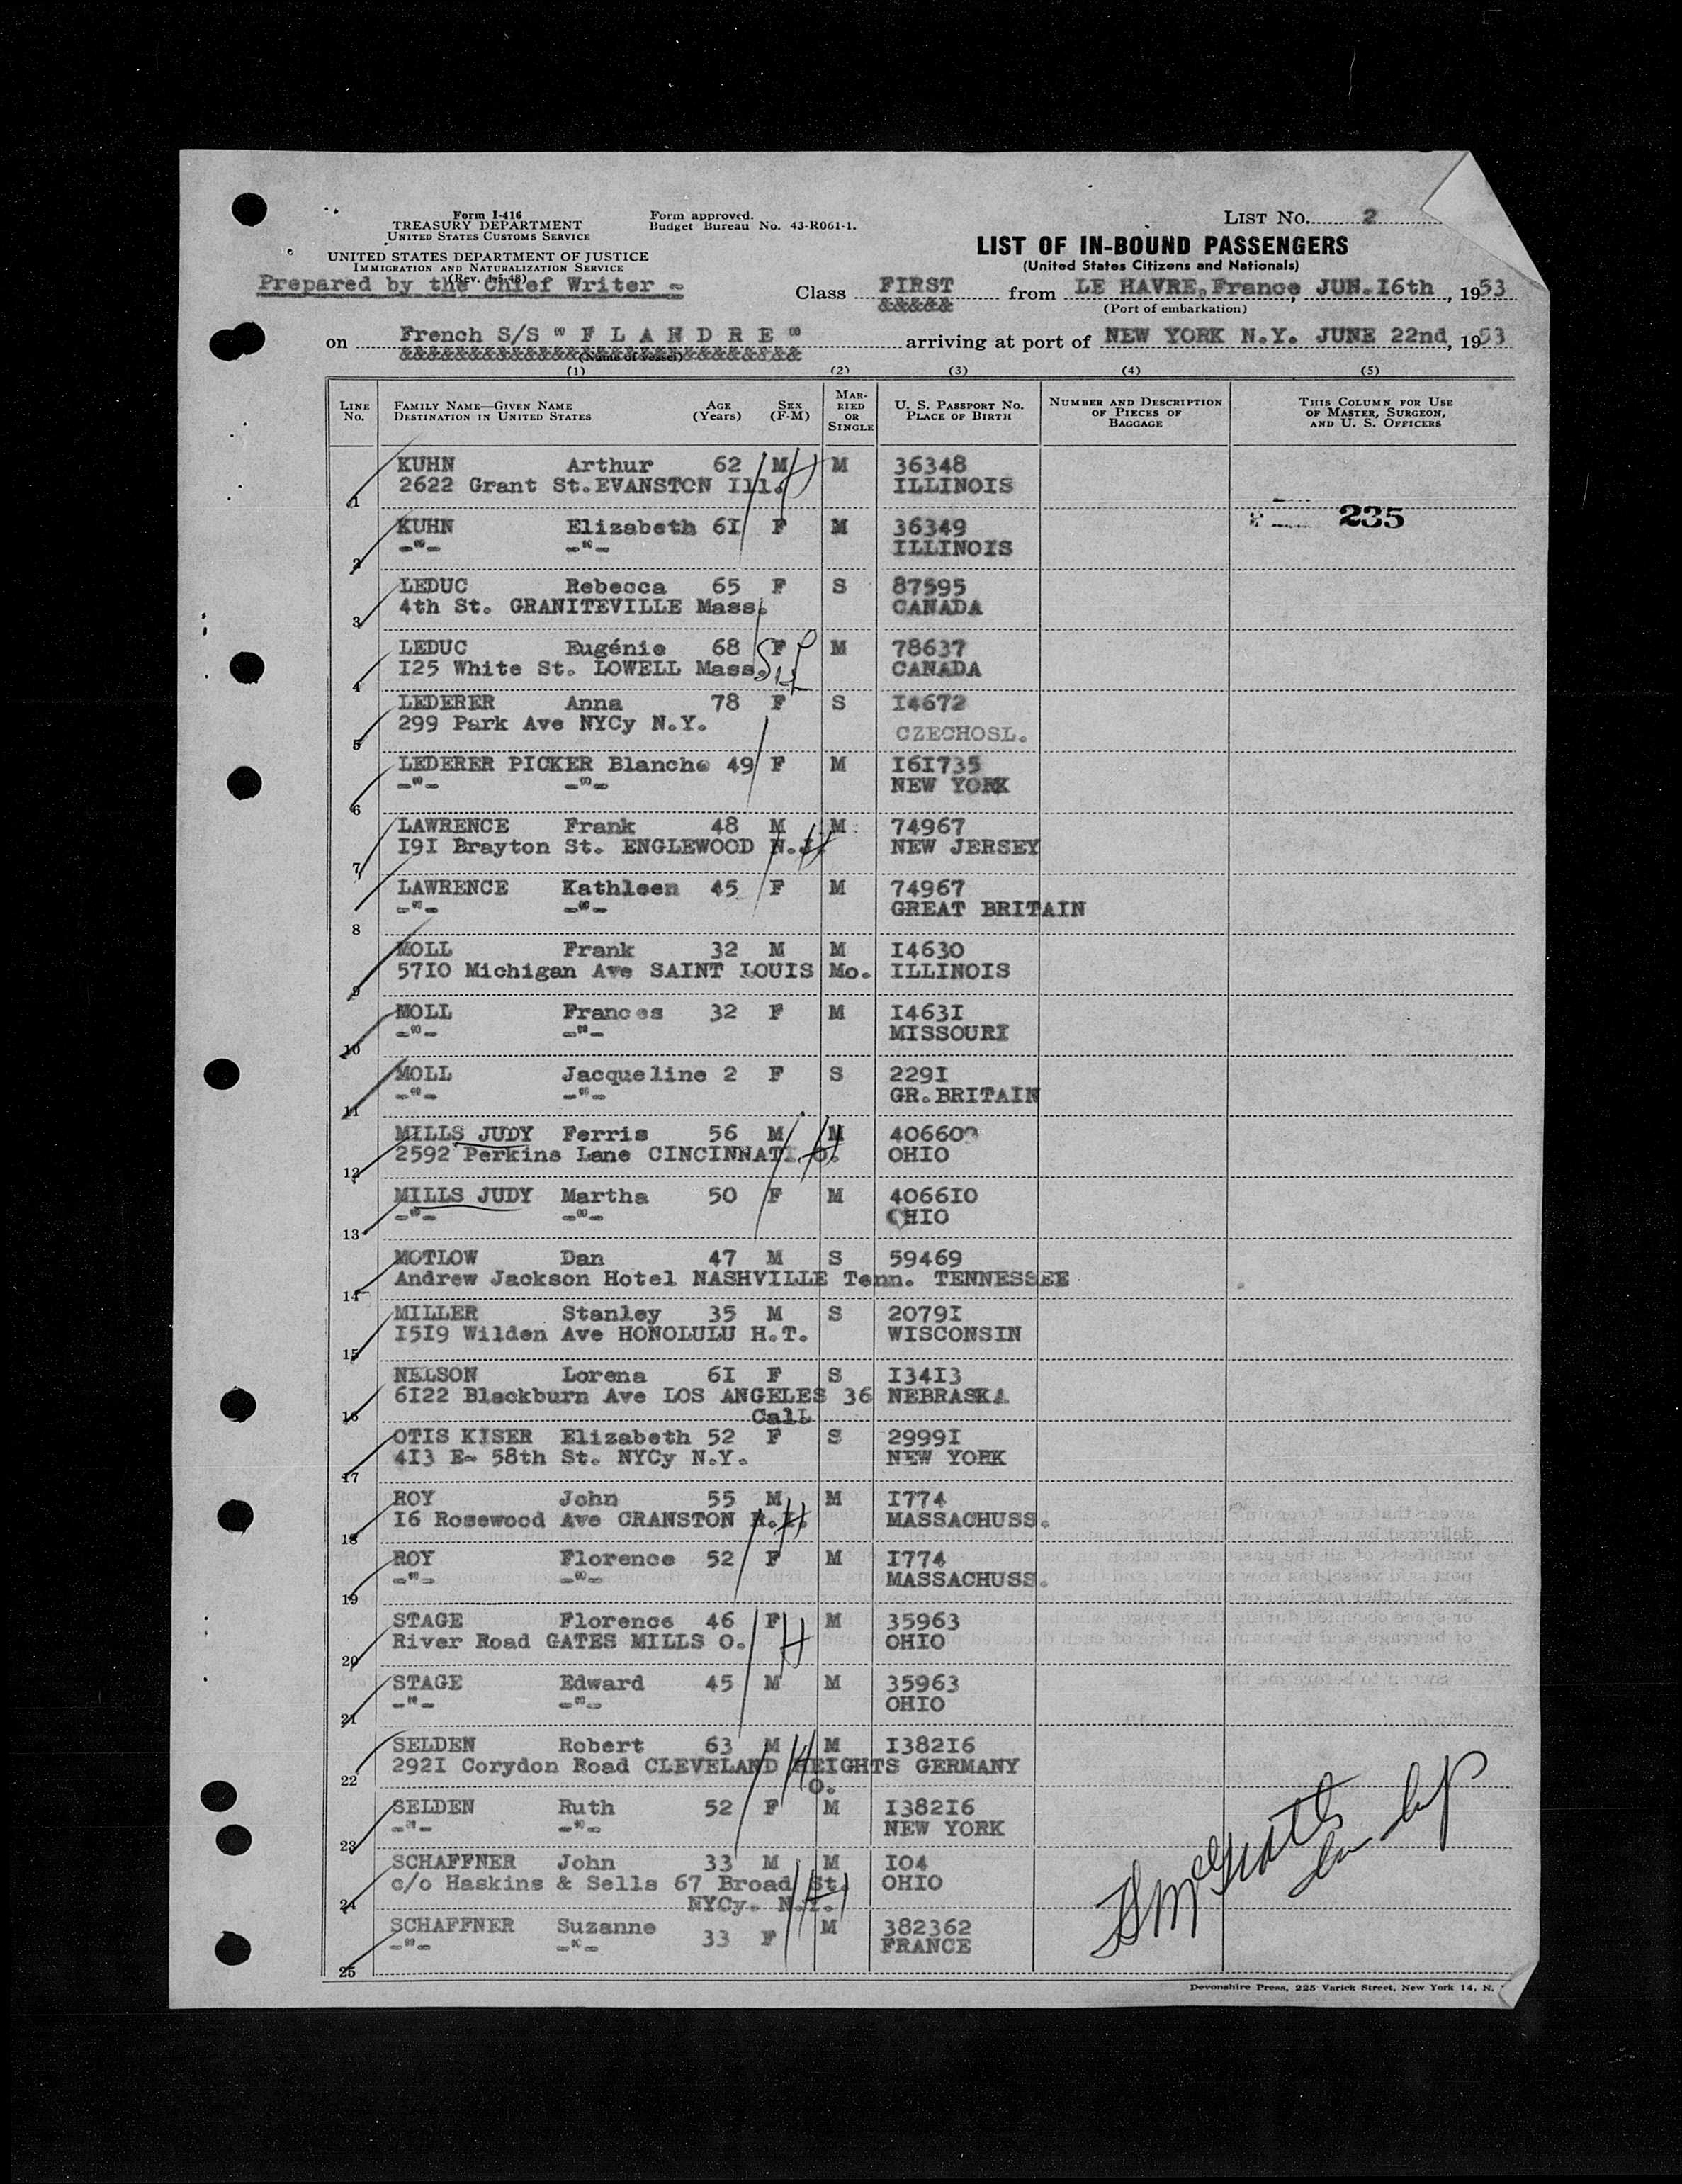 Form I-416
TREASURY DEPARTMENT
UNITED STATES CUSTOMS SERVICE
UNITED STATES DEPARTMENT OF JUSTICE
IMMIGRATION AND NATURALIZATION SERVICE
(Rev. 1-5-48)
Prepared by the Chief Writer -
Form approved.
Budget Bureau No. 43-R061-1.
LIST NO. 2
LIST OF IN-BOUND PASSENGERS
(United States Citizens and Nationals)
Class FIRST from LE HAVRE, France, JUN. I6th, 1953
&&&&& (Port of embarkation)
on French S/S " F L A N D R E " arriving at port of NEW YORK N.Y. JUNE 22nd, 1953
(Name of vessel)
(1) (2) (3) (4) (5)
LINE No. FAMILY NAME—GIVEN NAME DESTINATION IN UNITED STATES AGE (Years) SEX (F-M) MARRIED OR SINGLE U. S. PASSPORT NO. PLACE OF BIRTH NUMBER AND DESCRIPTION OF PIECES OF BAGGAGE THIS COLUMN FOR USE OF MASTER, SURGEON, AND U. S. OFFICERS
KUHN Arthur 62 M M 36348
1 2622 Grant St. EVANSTON Ill. ILLINOIS
235
KUHN Elizabeth 6I F M 36349
2 -"- -"- ILLINOIS
LEDUC Rebecca 65 F S 87595
3 4th St. GRANITEVILLE Mass. CANADA
LEDUC Eugénie 68 F M 78637
4 I25 White St. LOWELL Mass. CANADA
LEDERER Anna 78 F S I4672
5 299 Park Ave NYCy N.Y. CZECHOSL.
LEDERER PICKER Blanche 49 F M I6I735
6 -"- -"- NEW YORK
LAWRENCE Frank 48 M M 74967
7 I9I Brayton St. ENGLEWOOD N.J. NEW JERSEY
LAWRENCE Kathleen 45 F M 74967
8 -"- -"- GREAT BRITAIN
MOLL Frank 32 M M I4630
9 57I0 Michigan Ave SAINT LOUIS Mo. ILLINOIS
MOLL Frances 32 F M I463I
10 -"- -"- MISSOURI
MOLL Jacqueline 2 F S 229I
11 -"- -"- GR.BRITAIN
MILLS JUDY Ferris 56 M M 406609
12 2592 Perkins Lane CINCINNATI O. OHIO
MILLS JUDY Martha 50 F M 4066I0
13 -"- -"- OHIO
MOTLOW Dan 47 M S 59469
14 Andrew Jackson Hotel NASHVILLE Tenn. TENNESSEE
MILLER Stanley 35 M S 2079I
15 I5I9 Wilden Ave HONOLULU H.T. WISCONSIN
NELSON Lorena 6I F S I34I3
16 6I22 Blackburn Ave LOS ANGELES 36 NEBRASKA
Call
OTIS KISER Elizabeth 52 F S 2999I
17 4I3 E- 58th St. NYCy N.Y. NEW YORK
ROY John 55 M M I774
18 I6 Rosewood Ave CRANSTON R.I. MASSACHUSS.
ROY Florence 52 F M I774
19 -"- -"- MASSACHUSS.
STAGE Florence 46 F M 35963
20 River Road GATES MILLS O. OHIO
STAGE Edward 45 M M 35963
21 -"- -"- OHIO
SELDEN Robert 63 M M I382I6
22 292I Corydon Road CLEVELAND HEIGHTS GERMANY
O.
SELDEN Ruth 52 F M I382I6
23 -"- -"- NEW YORK
SCHAFFNER John 33 M M I04
24 c/o Haskins & Sells 67 Broad St. OHIO
NYCy. N.Y.
SCHAFFNER Suzanne 33 F M 382362
25 -"- -"- FRANCE
Devonshire Press, 225 Varick Street, New York 14, N.